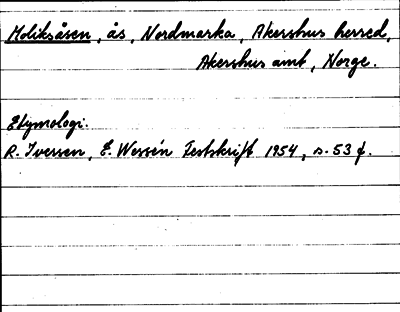 Moliksåsen, ås, Nordmarka, Akershus herred,
Akershus amt, Norge.
Etymologi.
R. Iversen, E. Wessén Festskrift 1954, s. 53 f.